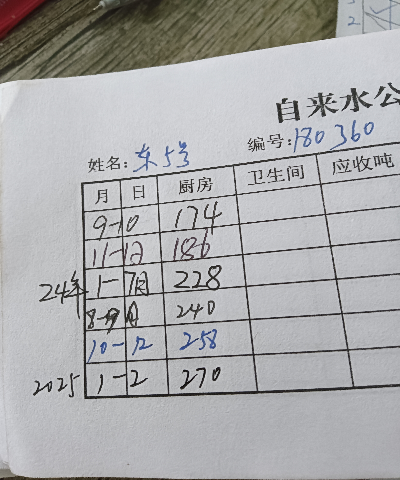 自来水公
姓名: 东5号 编号: 180360
月 日 厨房 卫生间 应收吨
9-10 174
11-12 186
24年 1-7月 228
8-9月 240
10-12 258
2025 1-2 270